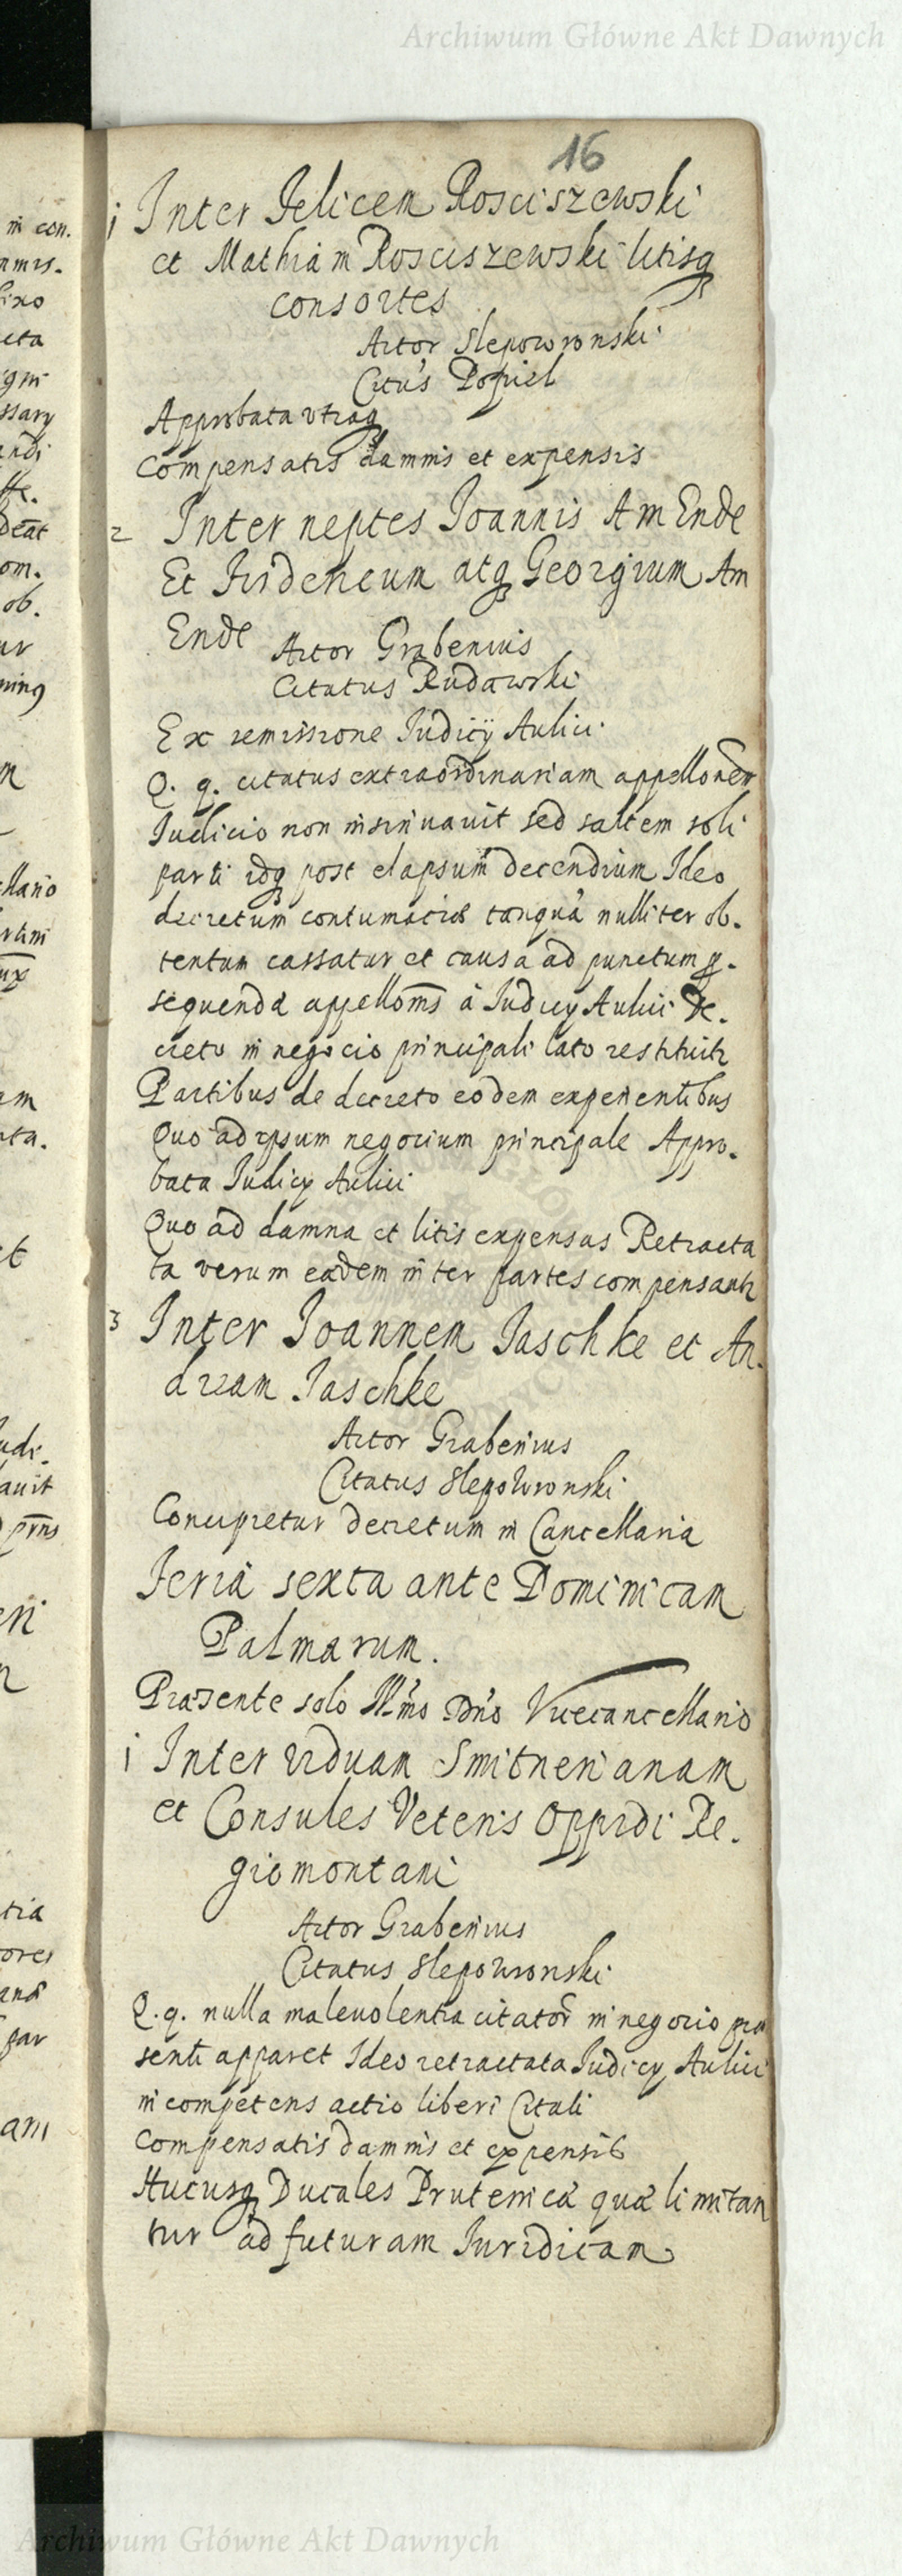 Archiwum Główne Akt Dawnych
16
1 Inter Felicem Rosciszewski
et Mathiam Rosciszewski litisq
consortes
Actor Slepowronski
Citus Popiel
Approbata vtraq
compensatis damnis et expensis
2 Inter neptes Joannis Am Ende
Et Fridericum atq Georgium Am
Ende Actor Grabenius
Citatus Rudawski
Ex remissione Judicÿ Aulici
Q. q. citatus extraordinariam appellonem
Judicio non insinuauit sed saltem soli
parti idq post elapsum decendium Ideo
decretum contumaciæ tanquã nulliter ob.
tentum cassatur et causa ad punctum p.
sequendæ appellonis à Judicy Aulici de.
creto in negocio principali lato restituitr
Partibus de decreto eodem experientibus
Quo ad ipsum negocium principale Appro.
bata Judicy Aulici
Quo ad damna et litis expensas Retracta
ta verum eadem inter partes compensantr
3 Inter Joannem Jaschke et An.
dream Jaschke
Actor Grabenius
Citatus Slepowronski
Concipietur decretum in Cancellaria
Feria sexta ante Dominicam
Palmarum.
Præsente solo Illmo Dno Vicecancellario
1 Inter viduam Smitnerianam
et Consules Veteris Oppidi Re.
giomontani
Actor Grabenius
Citatus Slepowronski
Q. q. nulla maleuolentia citator in negocio præ
senti apparet Ideo retractata Judicy Aulici
incompetens actio liberi Citati
compensatis damnis et expensis
Hucusq Ducales Prutenicæ quæ limitan
tur ad futuram Juridicam
Archiwum Główne Akt Dawnych